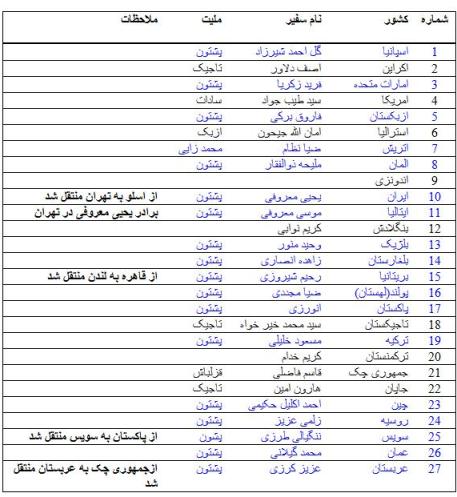 شماره کشور نام سفیر ملیت ملاحظات
1 اسپانیا گل احمد شیرزاد پشتون
2 اکراین اصف دلاور تاجیک
3 امارات متحده فرید زکریا پشتون
4 امریکا سید طیب جواد سادات
5 ازبکستان فاروق برکی پشتون
6 استرالیا امان الله جیحون ازبک
7 اتریش ضیا نظام محمد زایی
8 المان ملیحه ذوالفقار پشتون
9 اندونزی
10 ایران یحیی معروفی پشتون از اسلو به تهران منتقل شد
11 ایتالیا موسی معروفی پشتون برادر یحیی معروفی در تهران
12 بنگلادش کریم نوابی
13 بلژیک وحید منور پشتون
14 بلغارستان زاهده انصاری پشتون
15 بریتانیا رحیم شیرزوی پشتون از قاهره به لندن منتقل شد
16 پولند(لهستان) ضیا مجددی پشتون
17 پاکستان انورزی پشتون
18 تاجیکستان سید محمد خیر خواه تاجیک
19 ترکیه مسعود خلیلی پشتون
20 ترکمنستان کریم خدام
21 جمهوری چک قاسم فاضلی قزلباش
22 جاپان هارون امین تاجیک
23 چین احمد اکلیل حکیمی پشتون
24 روسیه زلمی عزیز پشتون
25 سویس ننگیالی طرزی پشتون از پاکستان به سویس منتقل شد
26 عمان محمد گیلانی پشتون
27 عربستان عزیز کرزی پشتون ازجمهوری چک به عربستان منتقل
شد